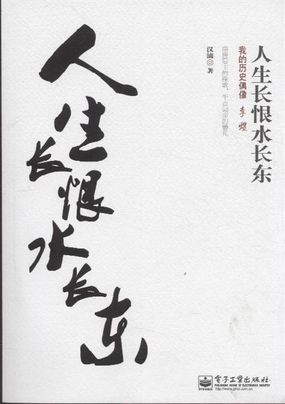 人生长恨水长东
人生长恨水长东
我的历史偶像 李煜
汉滴 著
电子工业出版社
PUBLISHING HOUSE OF ELECTRONICS INDUSTRY
http://www.phei.com.cn